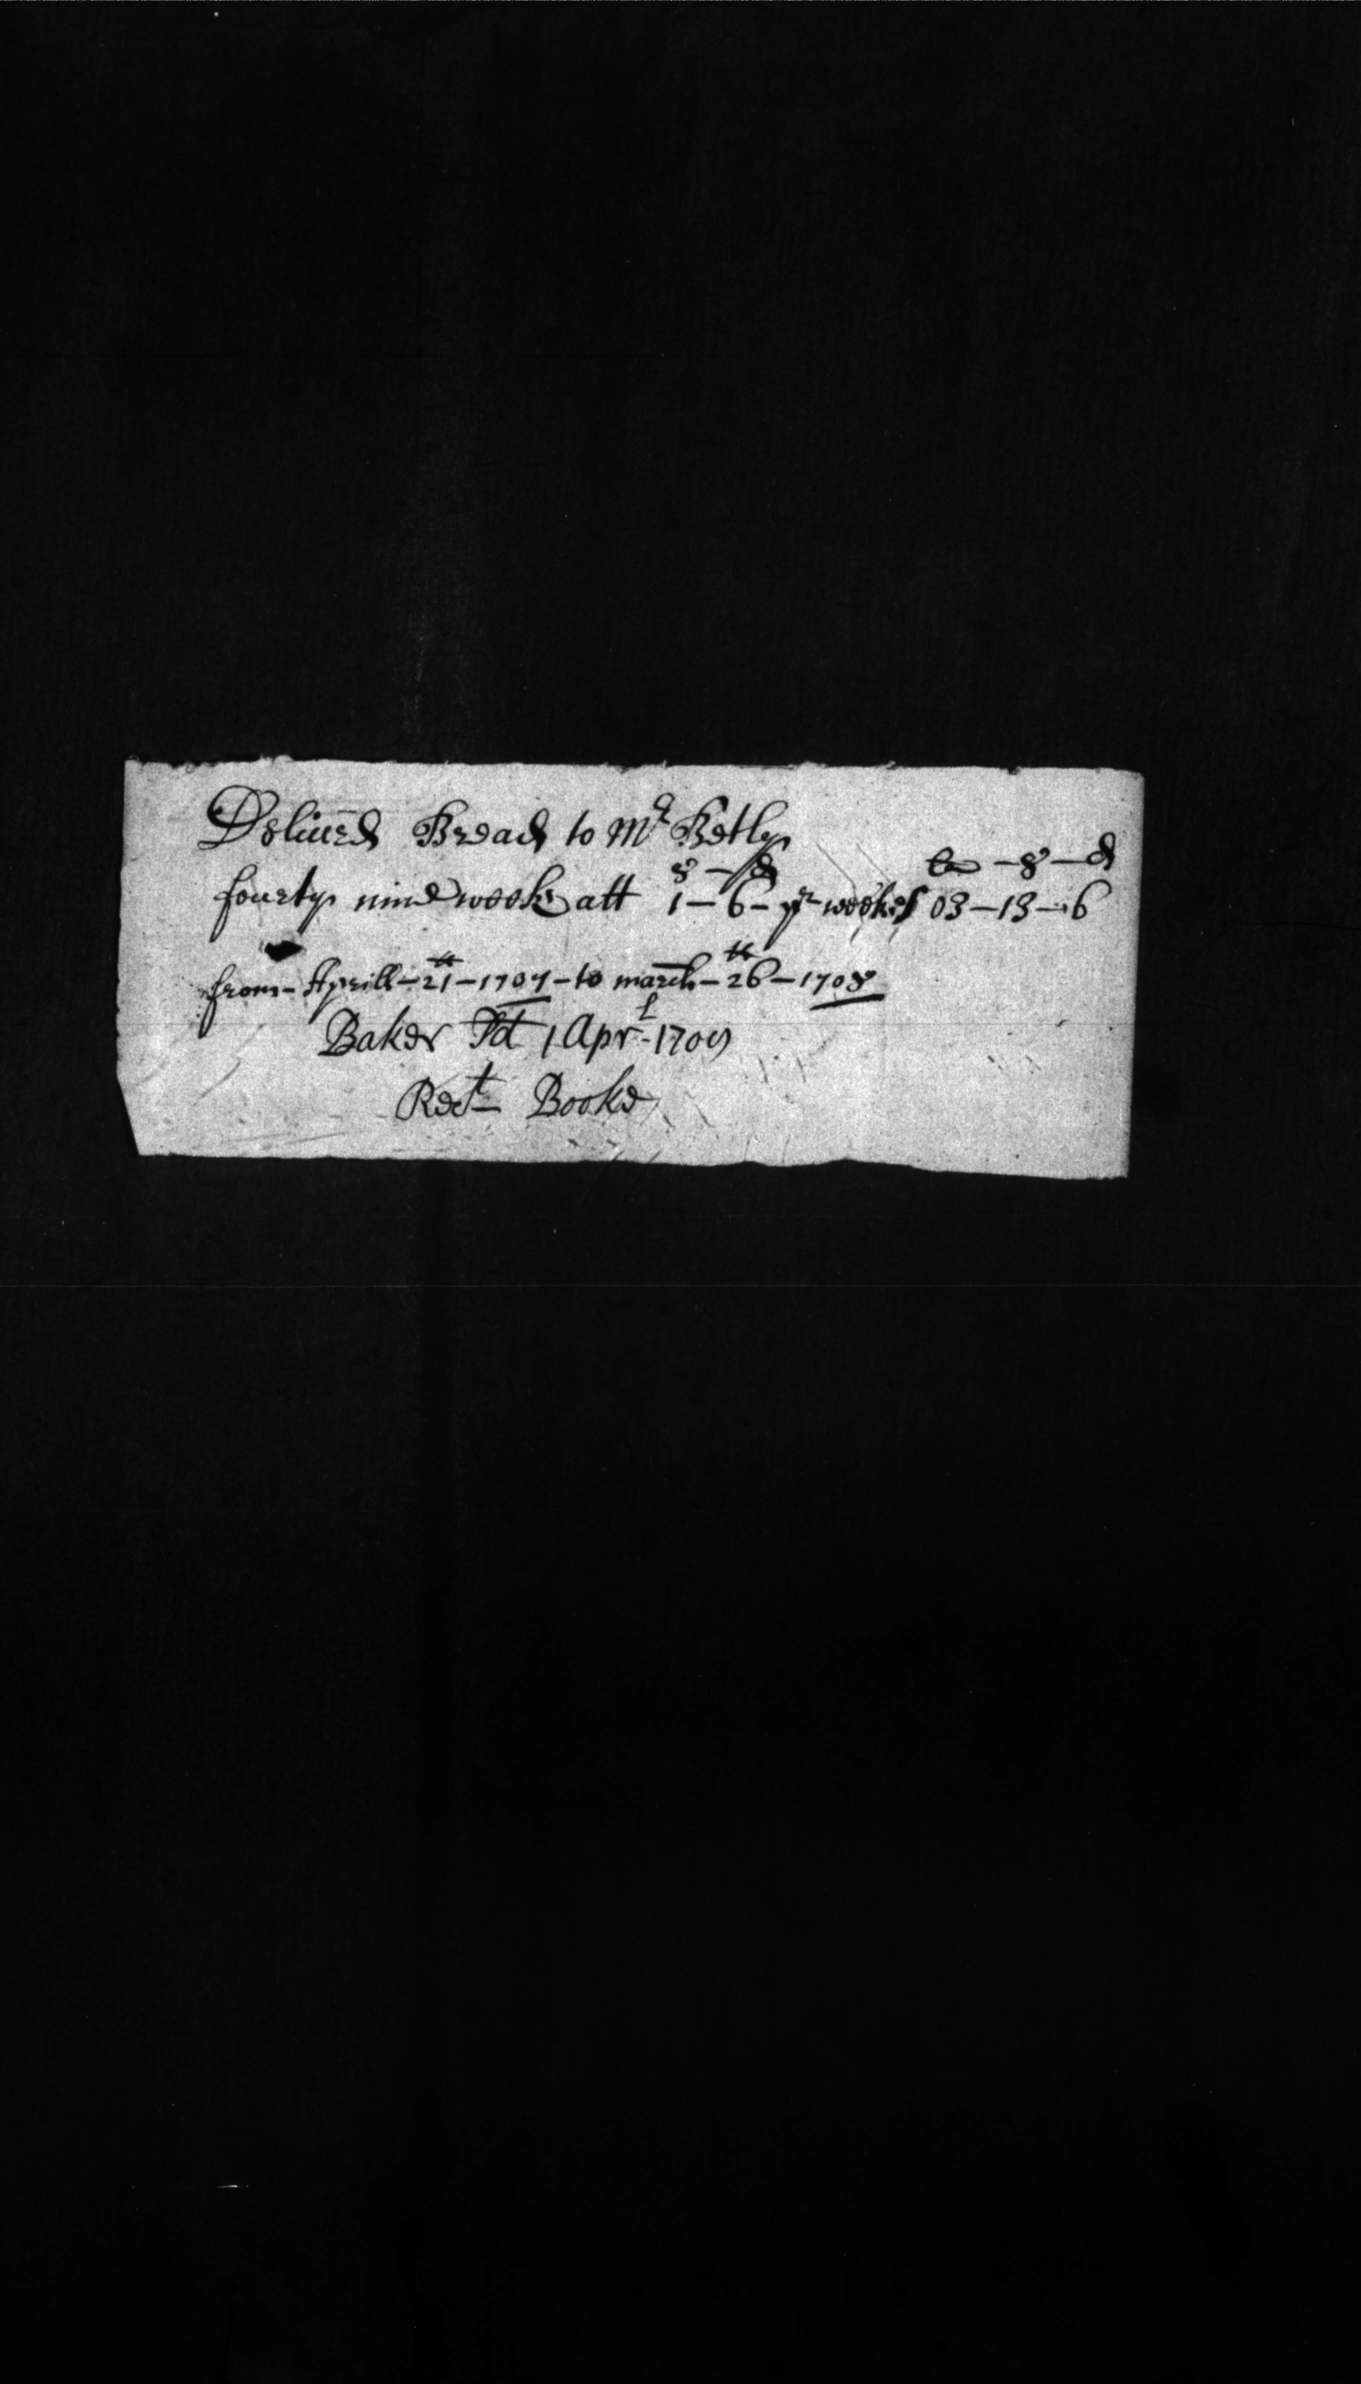 Deliuerd Bread to Mr Betly
s - d lb - s - d
fourty nine weeks att 1 - 6 - pr weeke 03 - 13 - 6
from - Aprill - 21 - 1707 - to march - 26 - 1708
Baker Pd 1 Aprl - 1709
Rect Booke